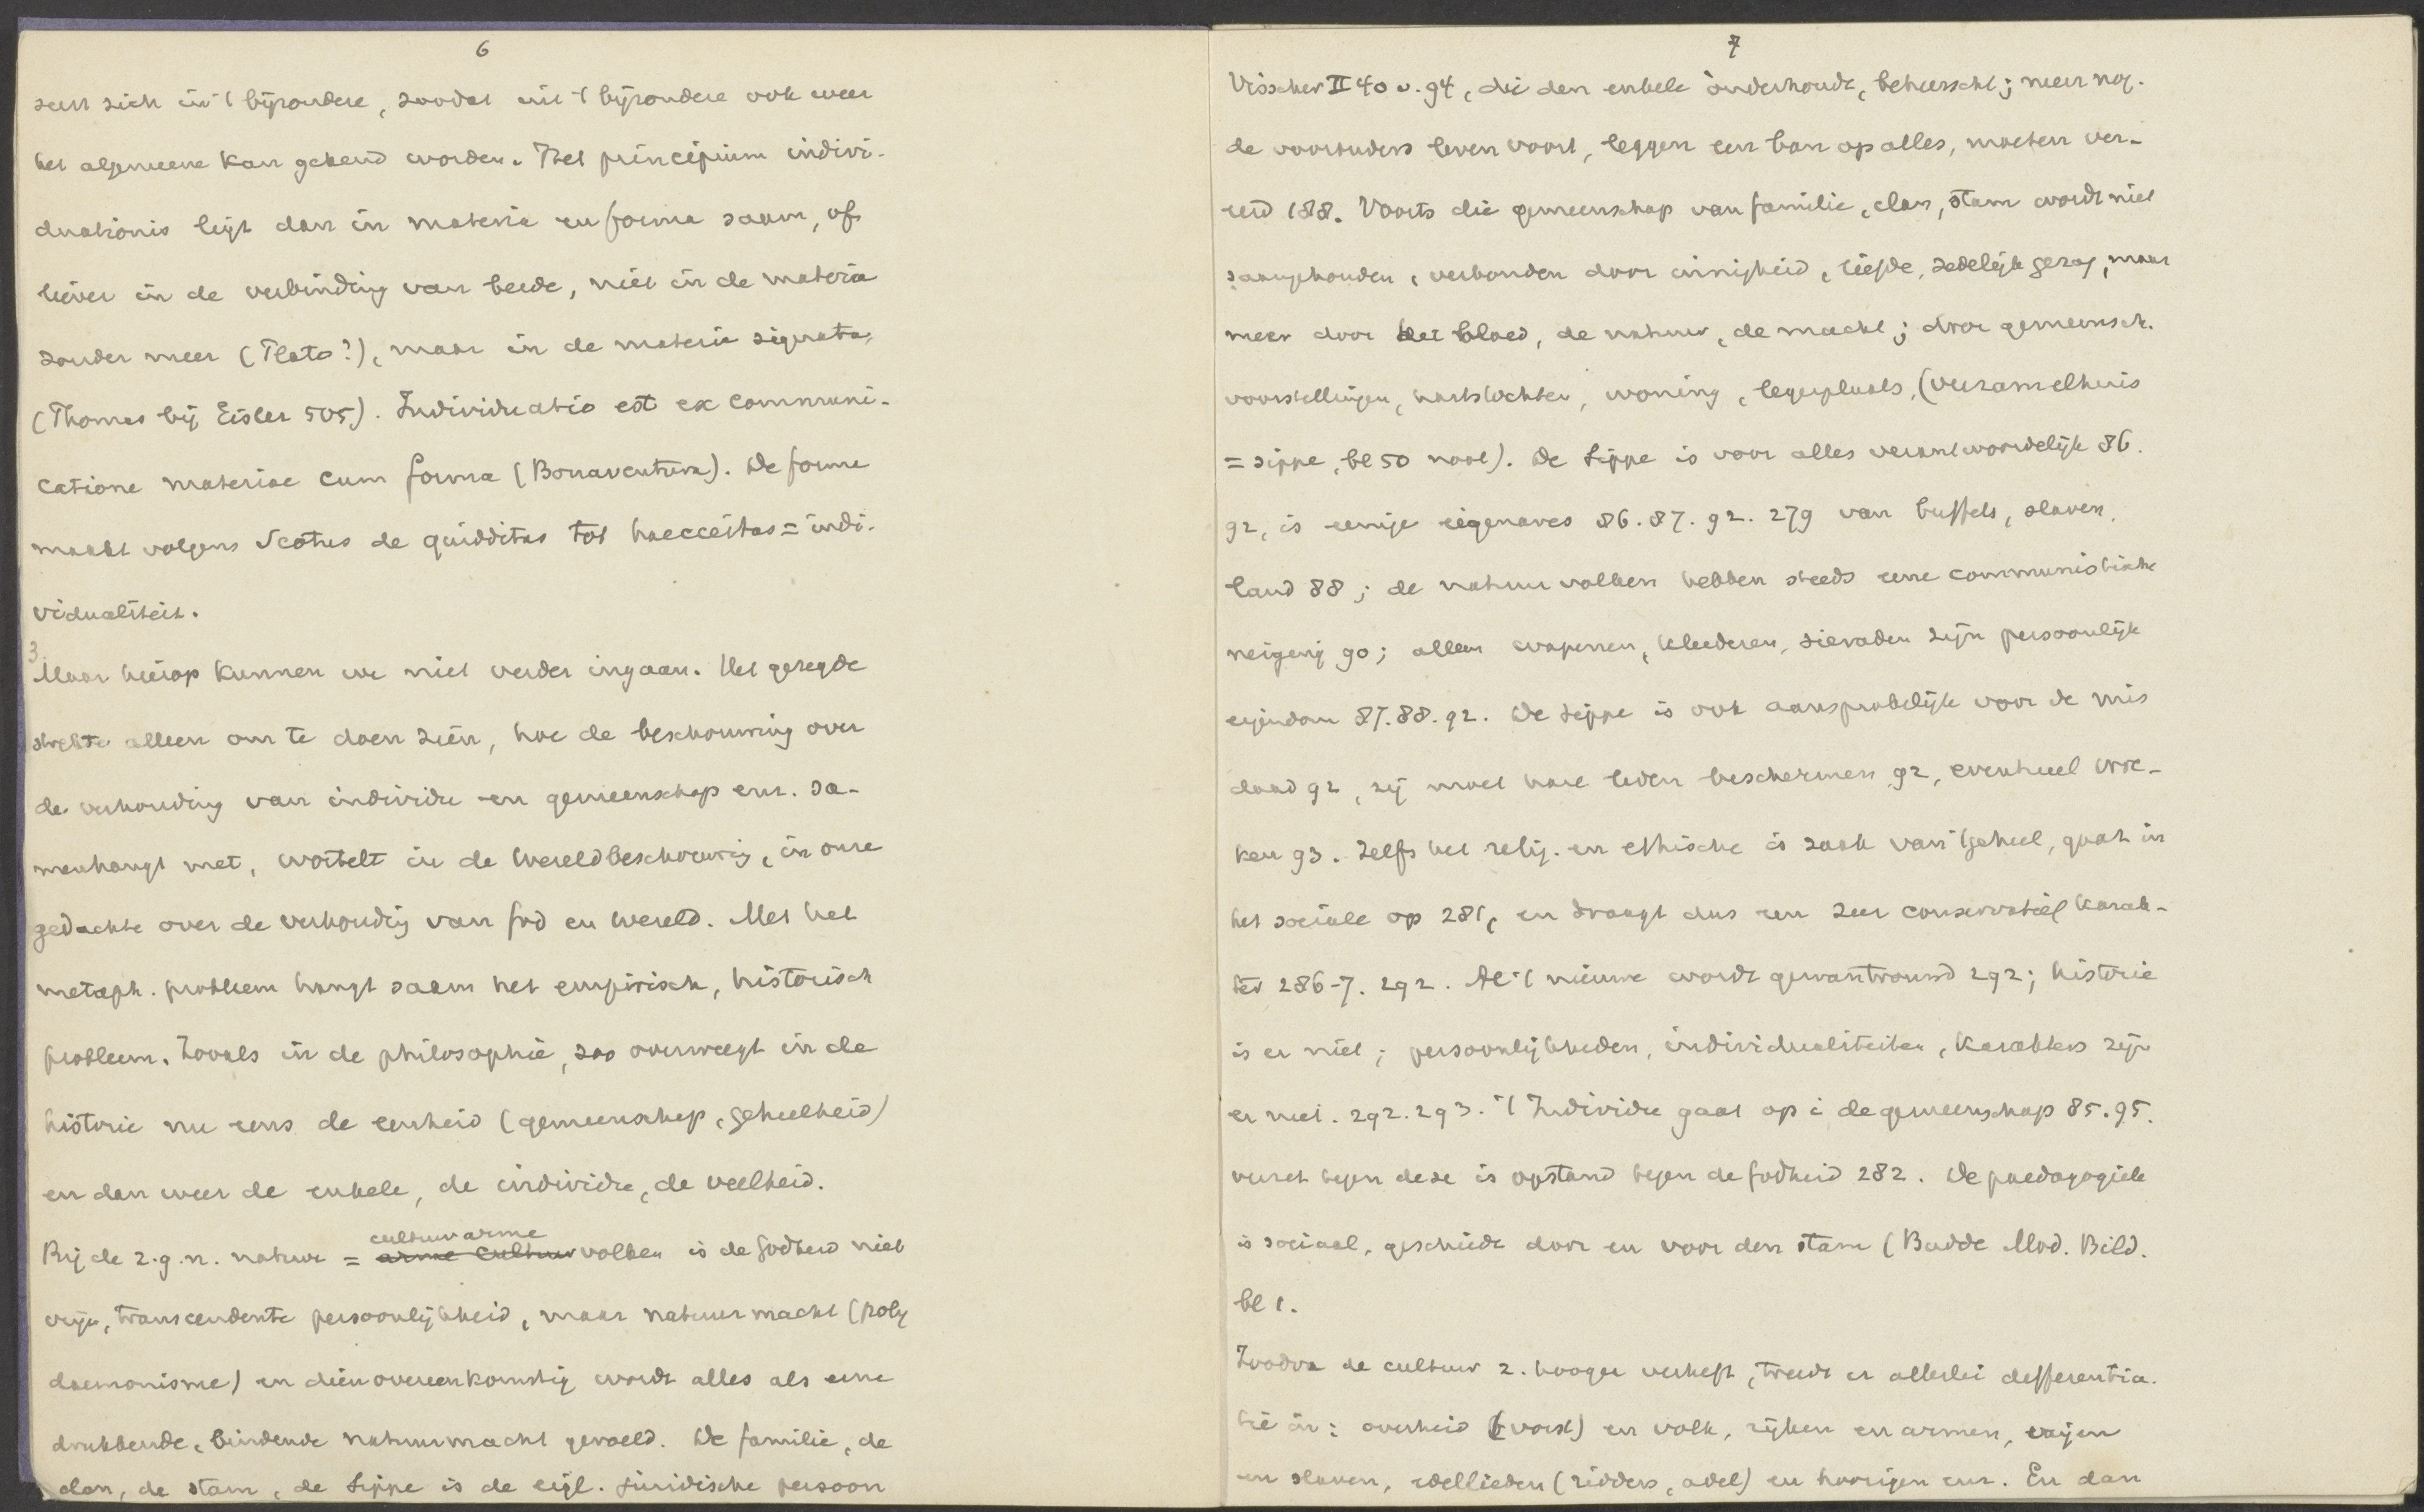 6
seert zich in 't bijzondere, zoodat uit 't bijzondere ook weer
het algemeene kan gekend worden. Het principium indivi-
duationis ligt dan in materie en forma saam, of
liever in de verbinding van beide, niet in de materia
zonder meer (Plato?), maar in de materia signata,
(Thomas bij Eisler 505). Individuatio est ex communi-
catione materiae cum forma (Bonaventura). De forma
maakt volgens Scotus de quidditas tot haecceitas = indi-
vidualiteit.
3. Maar hierop kunnen we niet verder ingaan. Het gezegde
strekte alleen om te doen zien, hoe de beschouwing over
de verhouding van individu en gemeenschap enz. sa-
menhangt met, wortelt in de wereldbeschouwing, in onze
gedachte over de verhouding van God en wereld. Met het
metaph. probleem hangt saam het empirisch, historisch
probleem. Zooals in de philosophie, zoo overweegt in de
historie nu eens de eenheid (gemeenschap, geheelheid)
en dan weer de enkele, de individu, de veelheid.
Bij de z.g.n. natuur = arme cultuur cultuurarme volken is de Godheid niet
vrije, transcendente persoonlijkheid, maar natuurmacht (poly
daemonisme) en dienovereenkomstig wordt alles als eene
drukkende, bindende natuurmacht gevoeld. De familie, de
clan, de stam, de Sippe is de eigl. juridische persoon
7
Visscher II 40 v. 94, die den enkele onderhoudt, beheerscht; meer nog.
de voorouders leven voort, leggen een ban op alles, moeten ver-
eerd 188. Voorts die gemeenschap van familie, clan, stam wordt niet
saamgehouden, verbonden door innigheid, liefde, zedelijk gezag, maar
meer door het bloed, de natuur, de macht; door gemeensch.
voorstellingen, hartstochten, woning, legerplaats, (verzamelhuis
= sippe, bl 50 noot). De Sippe is voor alles verantwoordelijk 86.
92, is eenige eigenares 86. 87. 92. 279 van buffels, slaven,
land 88; de natuurvolken hebben steeds eene communistische
neiging 90; alleen wapenen, kleederen, sieraden zijn persoonlijk
eigendom 87. 88. 92. De Sippe is ook aansprakelijk voor de mis
daad 92, zij moet hare leden beschermen 92, eventueel wre-
ken 93. Zelfs het relig. en ethische is zaak van 't geheel, gaat in
het sociale op 281, en draagt dus een zeer conservatief karak-
ter 286-7. 292. Al 't nieuwe wordt gewantrouwd 292; historie
is er niet; persoonlijkheden, individualiteiten, karakters zijn
er niet. 292. 293. 't Individu gaat op i. de gemeenschap 85. 95.
verzet tegen deze is opstand tegen de Godheid 282. De paedagogiek
is sociaal, geschiedt door en voor den stam (Budde Mod. Bild.
bl 1.
Zoodra de cultuur z. hooger verheft, treedt er allerlei differentia-
tie in: overheid (vorst) en volk, rijken en armen, vrijen
en slaven, edellieden (ridders, adel) en hoorigen enz. En dan